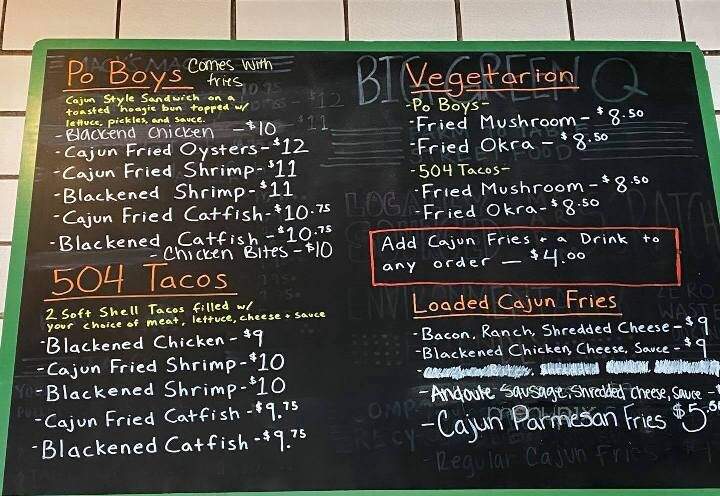 Po Boys Comes with
fries
Cajun Style Sandwich on a
toasted hoagie bun topped w/
lettuce, pickles, and sauce.
-Blackend Chicken -$10
-Cajun Fried Oysters-$12
-Cajun Fried Shrimp-$11
-Blackened Shrimp-$11
-Cajun Fried Catfish-$10.75
-Blackened Catfish-$10.75
-Chicken Bites-$10
504 Tacos
2 Soft Shell Tacos filled w/
your choice of meat, lettuce, cheese + sauce
-Blackened Chicken-$9
-Cajun Fried Shrimp-$10
-Blackened Shrimp-$10
-Cajun Fried Catfish-$9.75
-Blackened Catfish-$9.75
Vegetarian
-Po Boys-
-Fried Mushroom-$8.50
-Fried Okra-$8.50
-504 Tacos-
-Fried Mushroom-$8.50
-Fried Okra-$8.50
Add Cajun Fries + a Drink to
any order — $4.00
Loaded Cajun Fries
-Bacon, Ranch, Shredded Cheese-$9
-Blackened Chicken, Cheese, Sauce-$9
-Andouie Sausage, Shredded Cheese, Sauce -
-Cajun Parmesan Fries $5.50
-Regular Cajun Fries